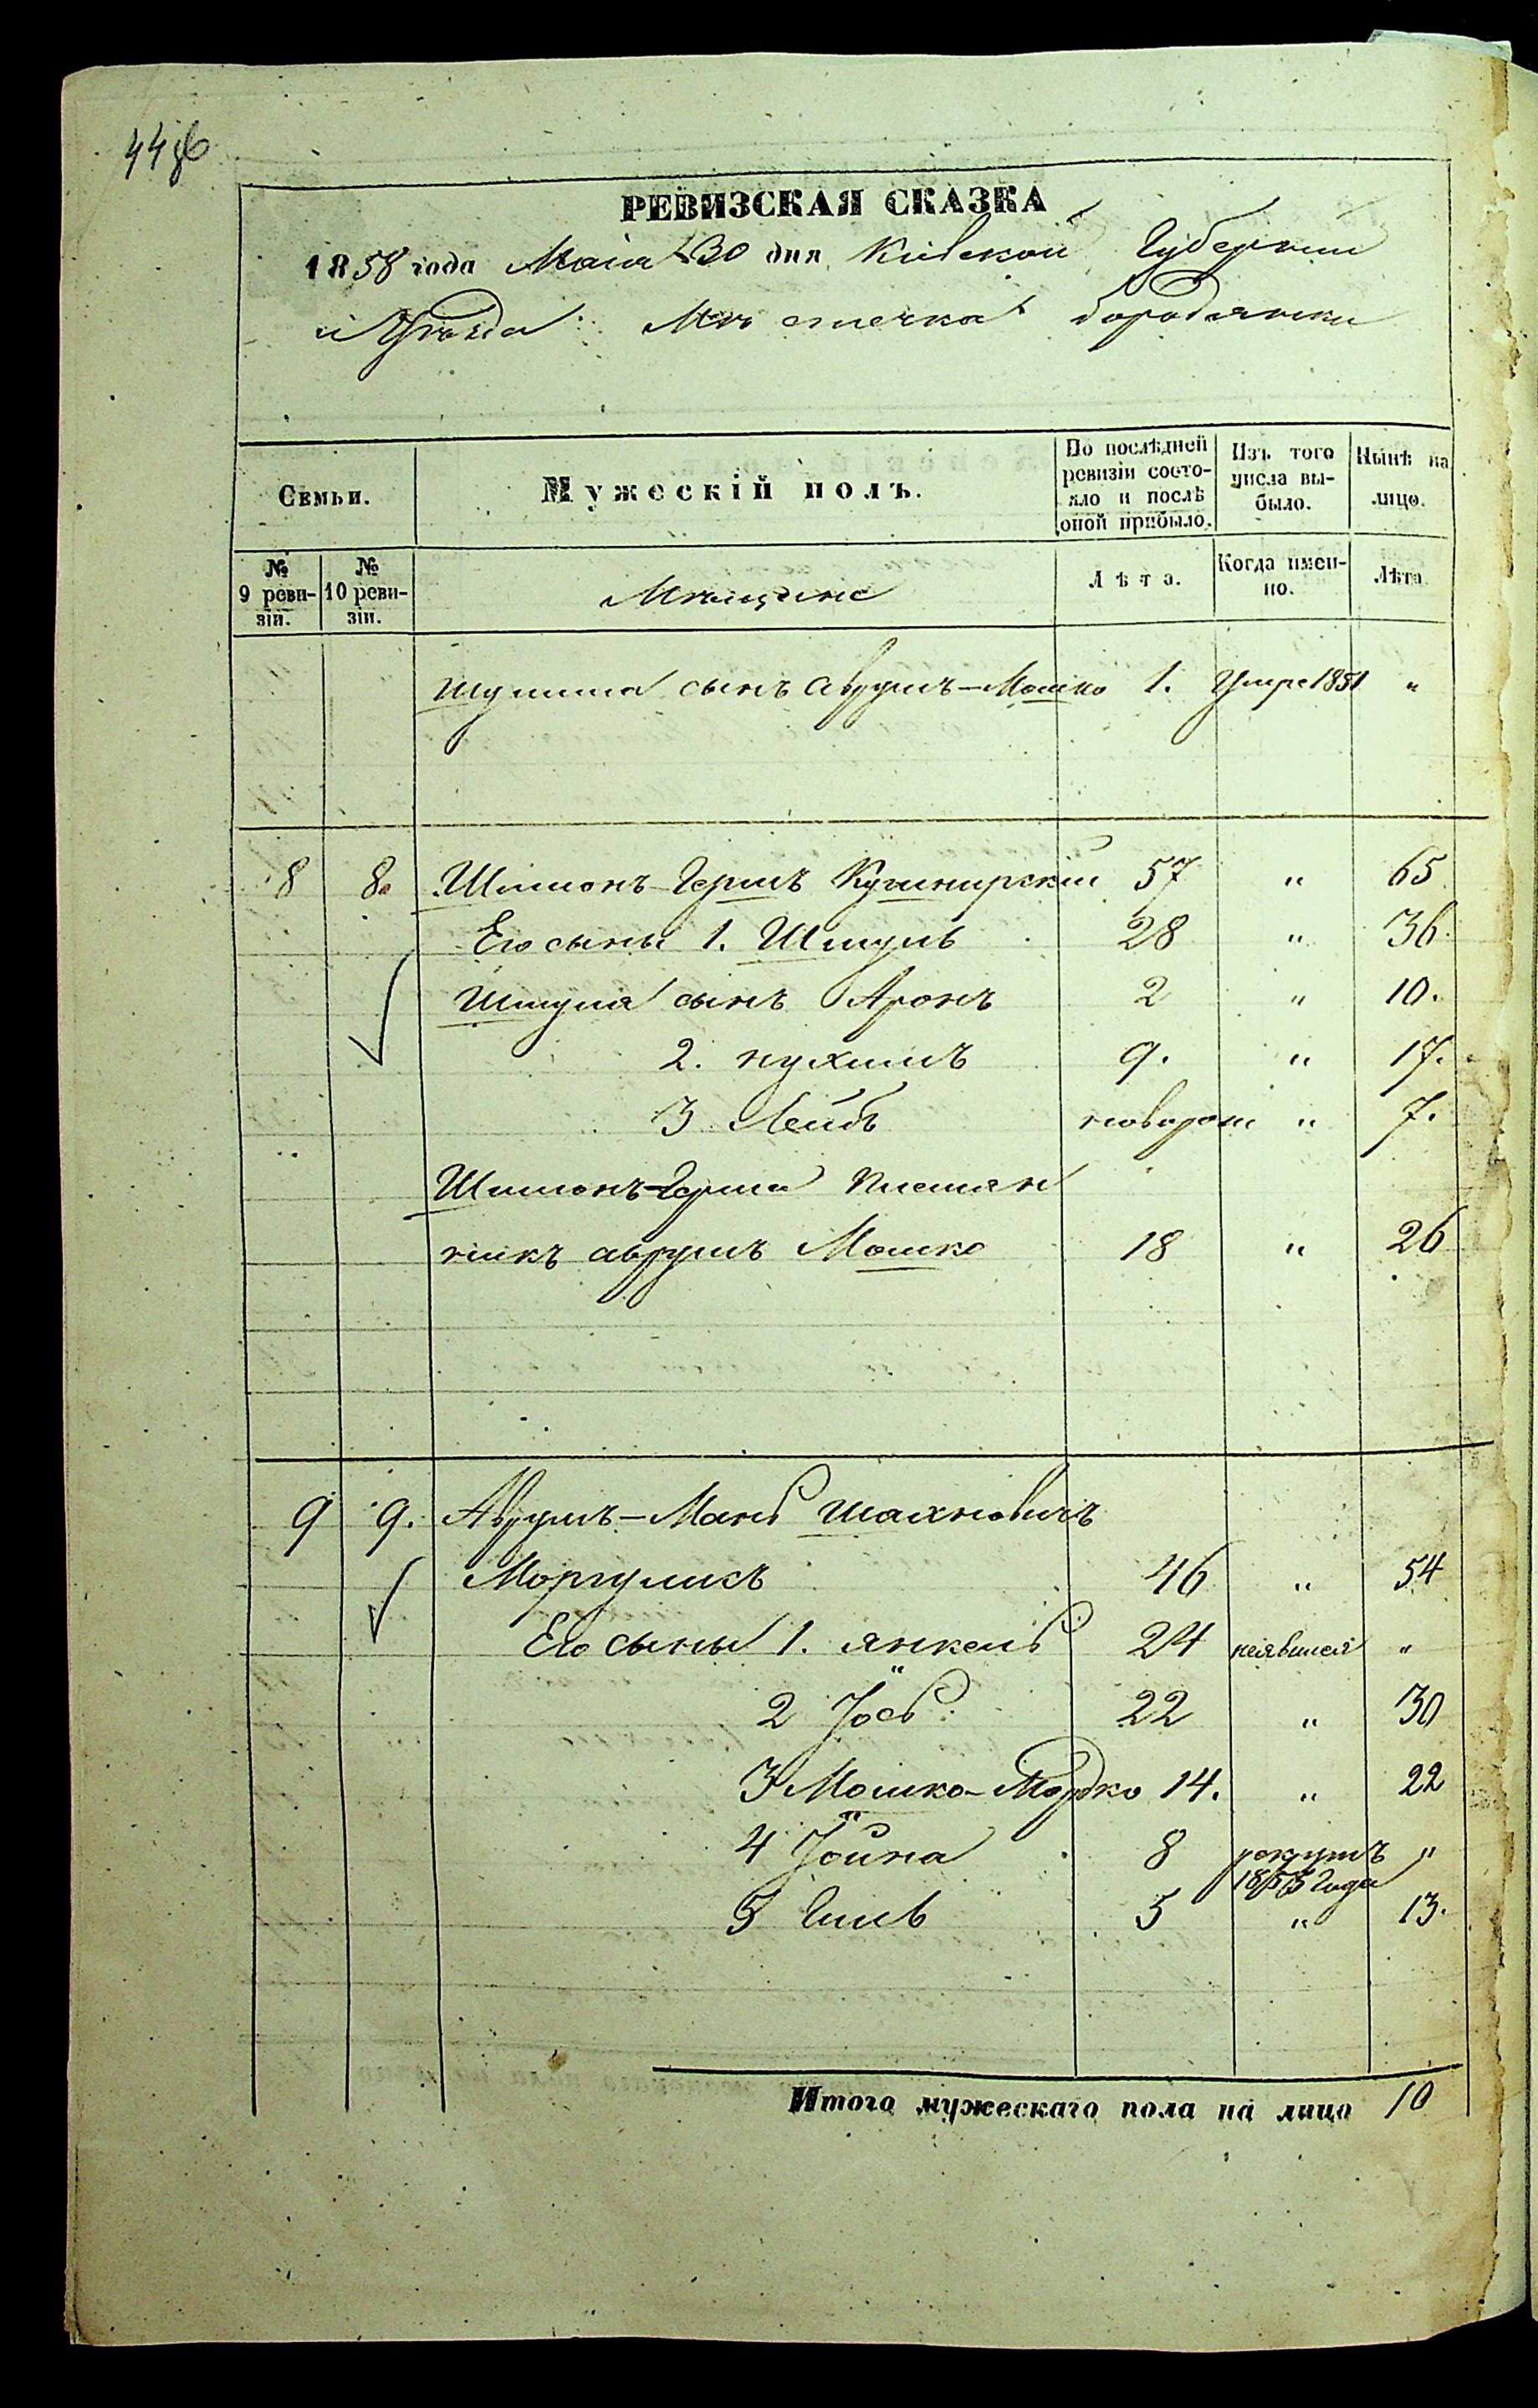 РЕВИЗСКАЯ СКАЗКА
1858 года Маія 30 дня Кіевской Губерніи
и Уѣзда Мѣстечка бородянки
Семьи. Мужескій полъ. По послѣдней ревизіи состояло и послѣ оной прибыло. Изъ того числа выбыло. Нынѣ на лицо.
№ 9 ревизіи. № 10 ревизіи. Мѣщане Лѣта. Когда именно. Лѣта
сынъ Аврумъ-Мошко 1. Умре 1851 "
8 8. Шимонъ-Гершъ Кушнирскій 57 " 65
Его сыны 1. Шмуль 28 " 36.
Шмуля сынъ Аронъ 2 " 10.
2. нухимъ 9. " 17.
3 Лейбъ новорож " 7.
Шимонъ-Герша племян
никъ аврумъ Мошко 18 " 26
9 9. Аврумъ-Мань шахновичъ
Моргулисъ 46 " 54
Его сыны 1. янкель 24 неявился "
2 Іось 22 " 30
3 Мошко-Мордко 14. " 22
4 Іойна 8 рекрутъ "
1855 Года
5 Гиль 5 " 13.
Итого мужескаго пола на лицо 10